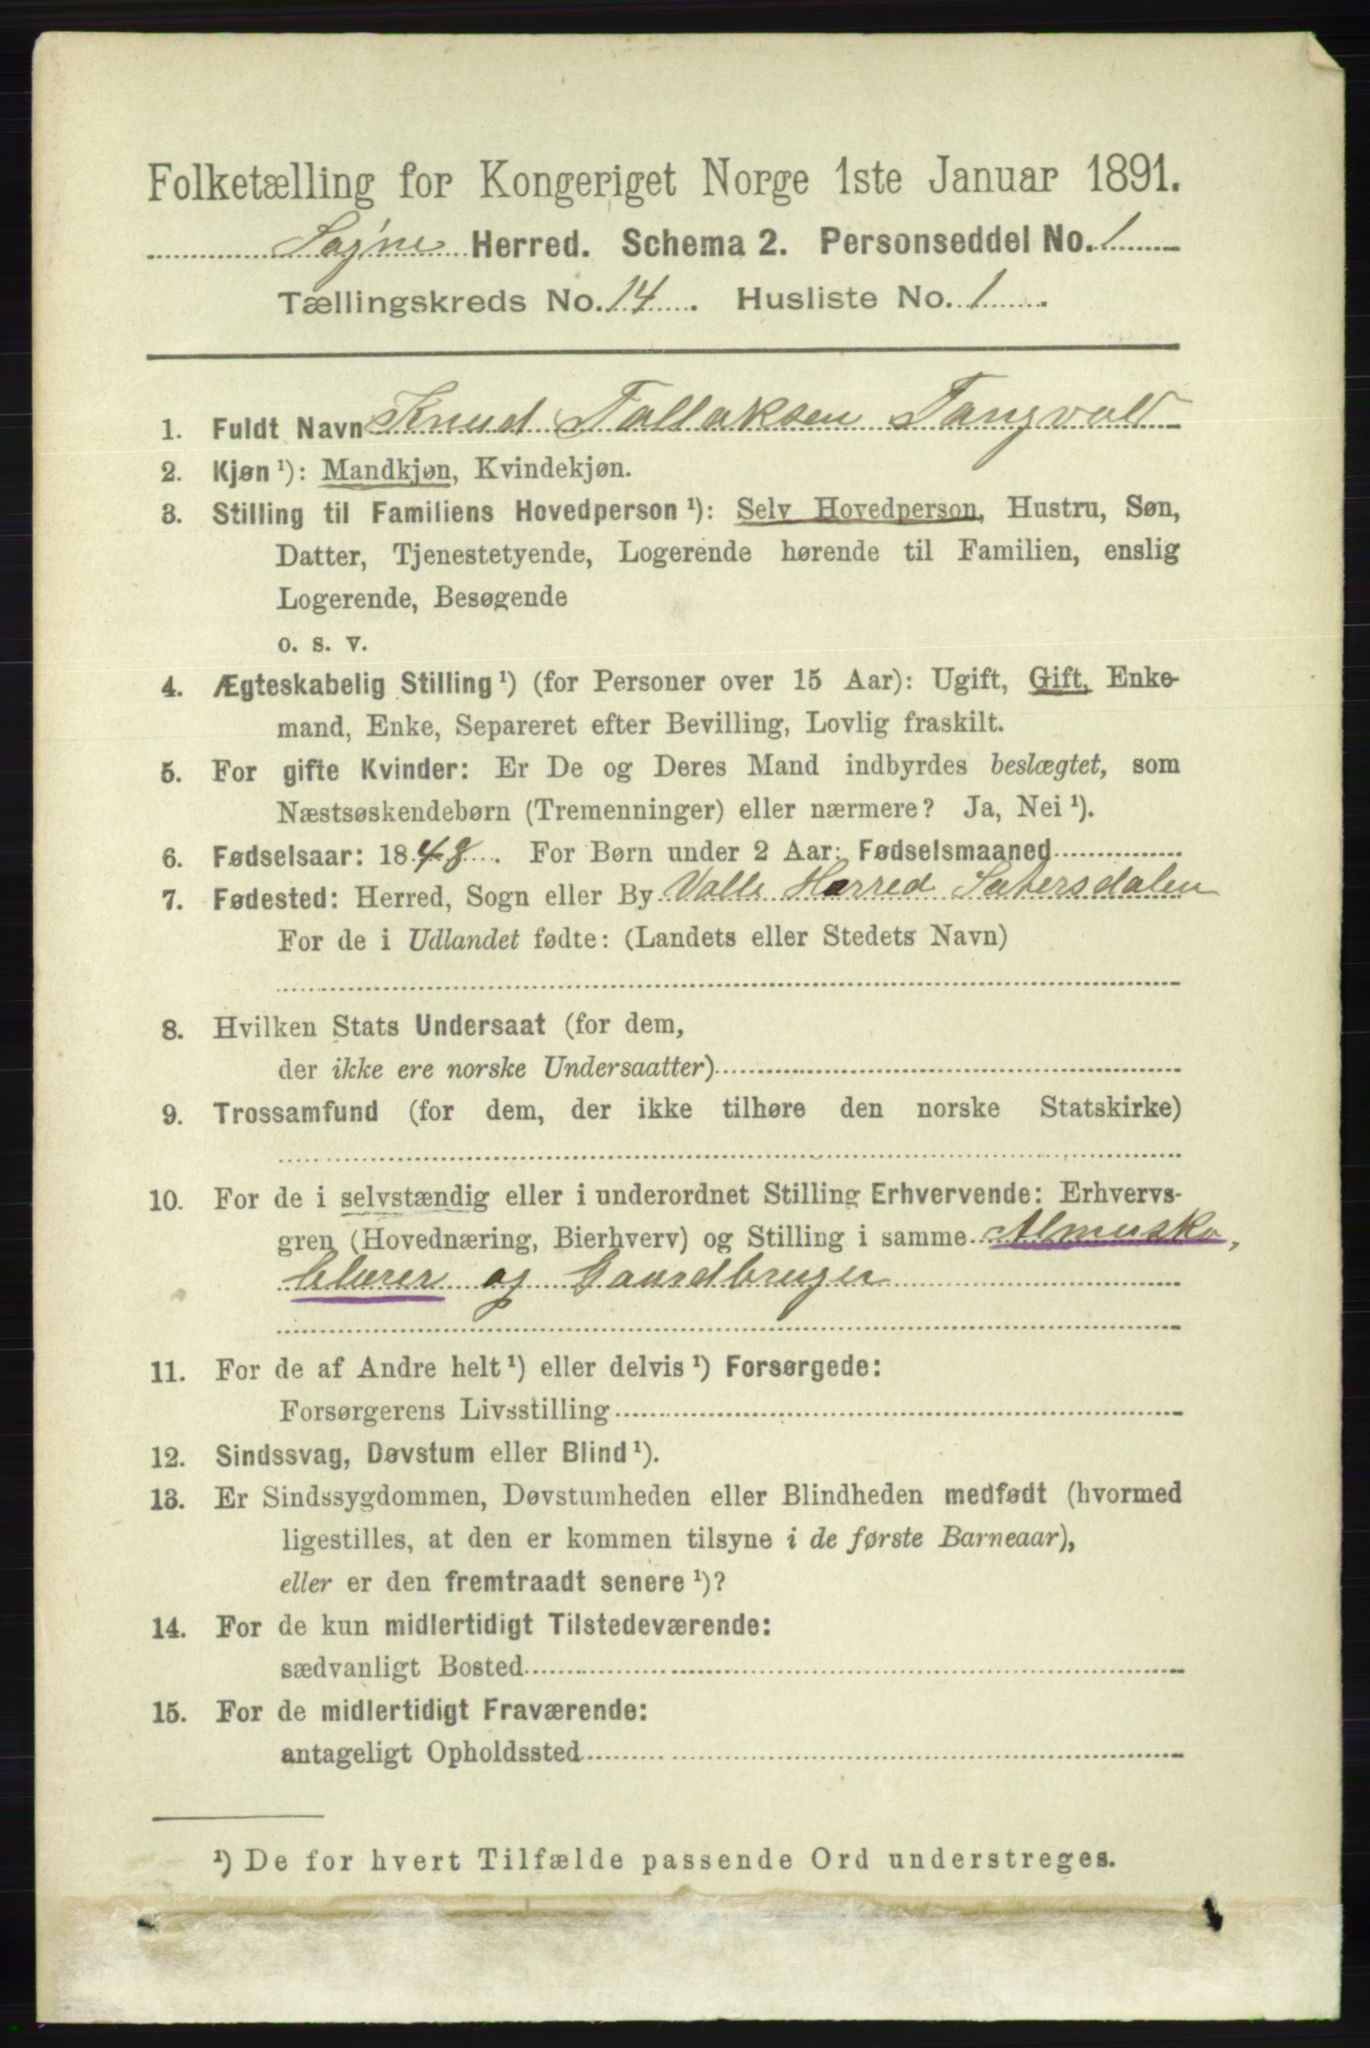 Folketælling for Kongeriget Norge 1ste Januar 1891.
Søgne Herred. Schema 2. Personseddel No. 1
Tællingskreds No. 14. Husliste No. 1
1. Fuldt Navn Knud Tallaksen Tangvald
2. Kjøn ¹): Mandkjøn, Kvindekjøn.
3. Stilling til Familiens Hovedperson ¹): Selv Hovedperson, Hustru, Søn,
Datter, Tjenestetyende, Logerende hørende til Familien, enslig
Logerende, Besøgende
o. s. v.
4. Ægteskabelig Stilling ¹) (for Personer over 15 Aar): Ugift, Gift, Enke-
mand, Enke, Separeret efter Bevilling, Lovlig fraskilt.
5. For gifte Kvinder: Er De og Deres Mand indbyrdes beslægtet, som
Næstsøskendebørn (Tremenninger) eller nærmere? Ja, Nei ¹).
6. Fødselsaar: 1848. For Børn under 2 Aar: Fødselsmaaned
7. Fødested: Herred, Sogn eller By Valle Herred Sætersdalen
For de i Udlandet fødte: (Landets eller Stedets Navn)
8. Hvilken Stats Undersaat (for dem,
der ikke ere norske Undersaatter)
9. Trossamfund (for dem, der ikke tilhøre den norske Statskirke)
10. For de i selvstændig eller i underordnet Stilling Erhvervende: Erhvervs-
gren (Hovednæring, Bierhverv) og Stilling i samme Almusko,
lelærer og Gaardbruger
11. For de af Andre helt ¹) eller delvis ¹) Forsørgede:
Forsørgerens Livsstilling
12. Sindssvag, Døvstum eller Blind ¹).
13. Er Sindssygdommen, Døvstumheden eller Blindheden medfødt (hvormed
ligestilles, at den er kommen tilsyne i de første Barneaar),
eller er den fremtraadt senere ¹)?
14. For de kun midlertidigt Tilstedeværende:
sædvanligt Bosted
15. For de midlertidigt Fraværende:
antageligt Opholdssted
¹) De for hvert Tilfælde passende Ord understreges.